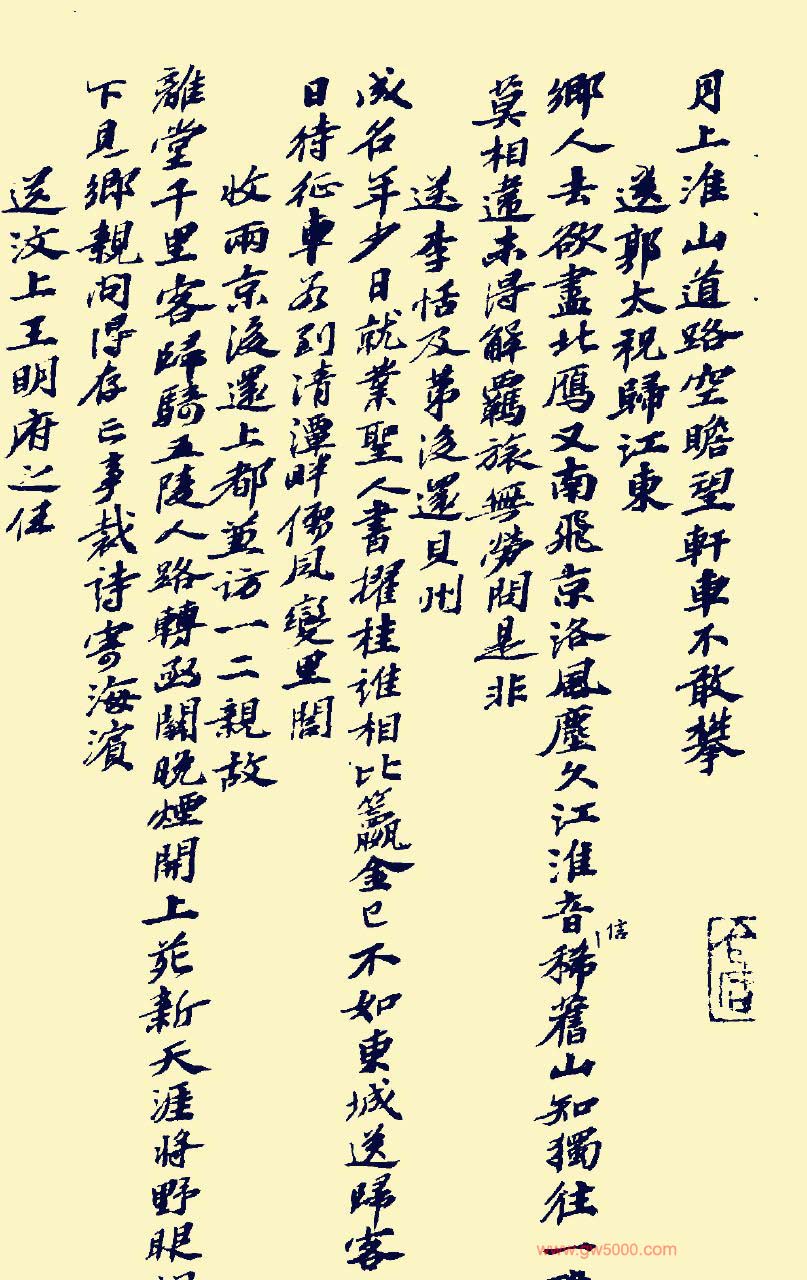 月上淮山道路空瞻望軒車不敢攀
送郭太祝歸江東
鄉人去欲盡北鴈又南飛京洛風塵久江淮音信稀舊山知獨往一
莫相違未得解羈旅無勞問是非
送李恬及第後還貝州
成名年少日就業聖人書擢桂誰相比籯金已不如東城送歸客
日待征車若到清潭畔儒風變里閭
收兩京後還上都兼访一二親故
離堂千里客歸騎五陵人路轉函關晚煙開上苑新天涯將野眼
下見鄉親问得存亡事裁詩寄海濱
送汶上王明府之任
www.gw5000.com